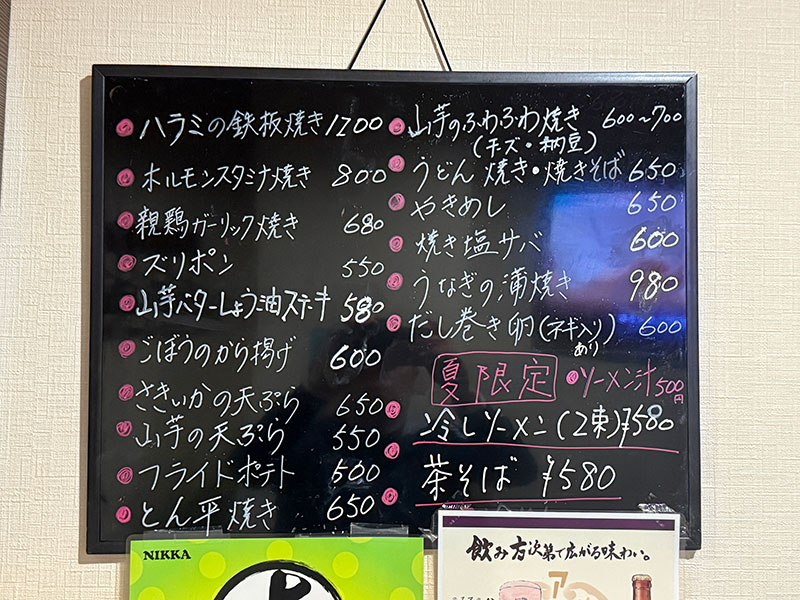 ハラミの鉄板焼き 1200
ホルモンスタミナ焼き 800
親鶏ガーリック焼き 680
ズリポン 550
山芋バターしょう油ステーキ 580
ごぼうのから揚げ 600
さきいかの天ぷら 650
山芋の天ぷら 550
フライドポテト 500
とん平焼き 650
山芋のふわふわ焼き 600~700
(チーズ・納豆)
うどん焼き・焼きそば 650
やきめし 650
焼き塩サバ 600
うなぎの蒲焼き 980
だし巻き卵(ネギ入り) 600
あり
夏限定 ソーメン汁 500円
冷しソーメン(2束)¥580
茶そば ¥580
NIKKA
飲み方次第で広がる味わい。